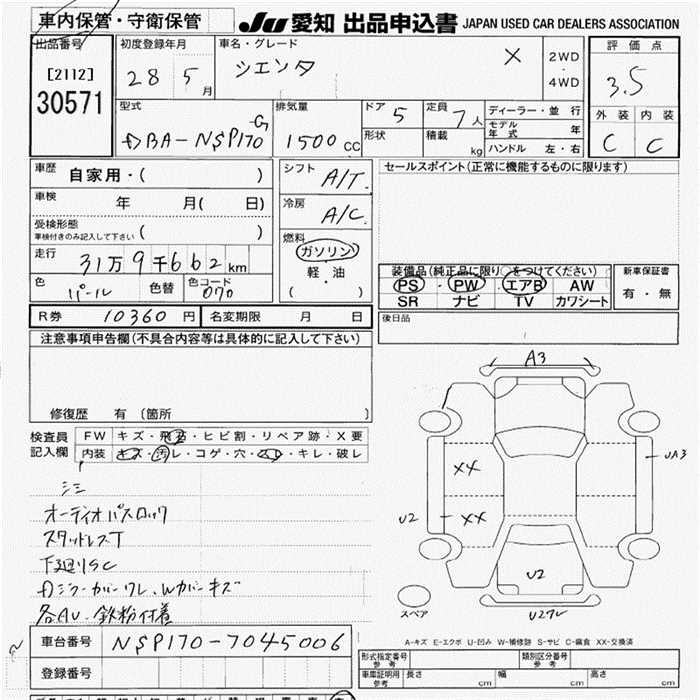 車内保管・守衛保管
JU 愛知 出品申込書 JAPAN USED CAR DEALERS ASSOCIATION
出品番号
[2112]
30571
初度登録年月
28 5 月
車名・グレード
シエンタ X
2WD
・
4WD
評価点
3.5
外装 内装
C C
型式
DBA-NSP170-G
排気量
1500 CC
ドア 5
形状
定員 7 人
積載 kg
ディーラー・並行
モデル年式 年
ハンドル 左・右
車歴 自家用・( )
車検 年 月( 日)
受検形態
車検付きのみ記入して下さい ( )
走行
31万9千662km
色 パール 色替 色コード 070
シフト A/T.
冷房 A/C.
燃料
ガソリン
軽・油
( )
セールスポイント(正常に機能するものに限ります)
装備品(純正品に限り○をつけてください)
PS・PW・エアB・AW
SR ナビ TV カワシート
新車保証書
有・無
R券 10360 円 名変期限 月 日
後日品
注意事項申告欄(不具合内容等は具体的に記入して下さい)
修復歴 有(箇所 )
検査員
記入欄
FW キズ・飛石・ヒビ割・リペア跡・X要
内装 キズ・汚レ・コゲ・穴・スレ・キレ・破レ
シミ
オーディオパスロック
スタッドレスT
下廻りSC
各AU・鉄粉付着
A3
UA3
XX
XX
U2
U2
U2ワレ
スペア
A-キズ E-エクボ U-凹み W-補修跡 S-サビ C-腐食 XX-交換済
車台番号 NSP170-7045006
登録番号
型式指定番号
参考
類別区分番号
参考
車庫証明用
参考
長さ cm 幅 cm 高さ cm